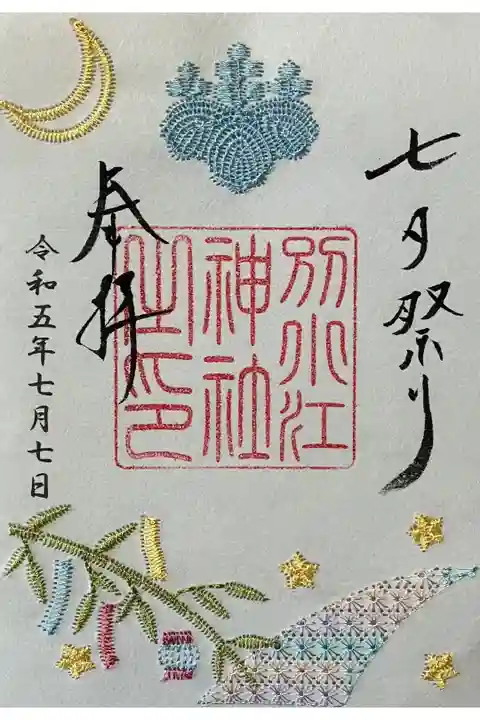 七夕祭り
別小江
神社
之印
奉拝
令和五年七月七日